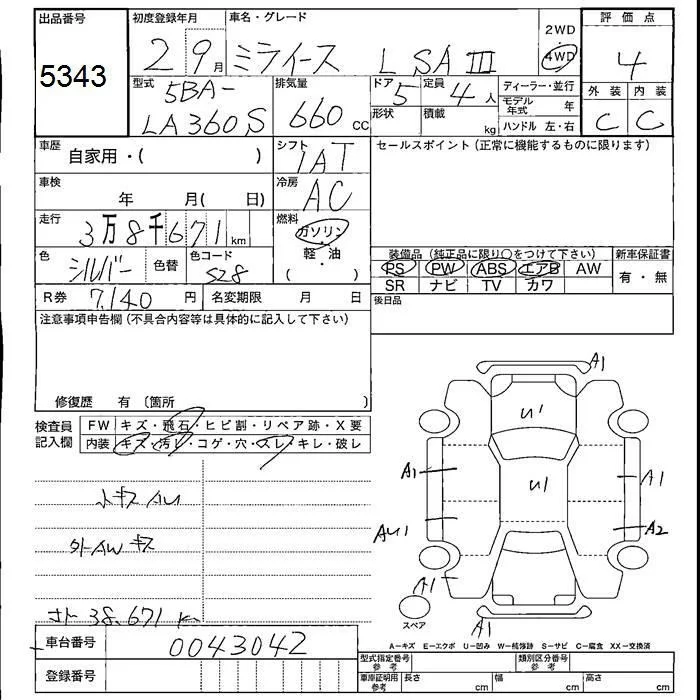 出品番号
5343
初度登録年月
2 9月
車名・グレード
ミライース L SAⅢ
2WD
4WD
評価点
4
型式
5BA-
LA360S
排気量
660 CC
ドア
5
定員
4人
形状
積載
kg
ディーラー・並行
モデル年式 年
ハンドル 左・右
外装
内装
C
C
車歴
自家用・( )
シフト
IAT
セールスポイント(正常に機能するものに限ります)
車検
年 月( 日)
冷房
AC
走行
3万8千671km
燃料
ガソリン・
軽・油
( )
色
シルバー
色替
色コード
S28
装備品(純正品に限り○をつけて下さい)
PS PW ABS エアB AW
SR ナビ TV カワ
新車保証書
有・無
R券 7,140円
名変期限 月 日
後日品
注意事項申告欄(不具合内容等は具体的に記入して下さい)
修復歴 有 〔箇所 〕
検査員記入欄
FW キズ・飛石・ヒビ割・リペア跡・X要
内装 キズ・汚レ・コゲ・穴・スレ・キレ・破レ
小キズ AU
外AW キズ
メーター 38,671 K
A1
U1
U1
A1
A1
AU1
A2
A1
A1
スペア
A-キズ E-エクボ U-凹み W-補修跡 S-サビ C-腐食 XX-交換済
車台番号
0043042
登録番号
型式指定番号
参考
類別区分番号
参考
車庫証明用
参考
長さ cm
幅 cm
高さ cm